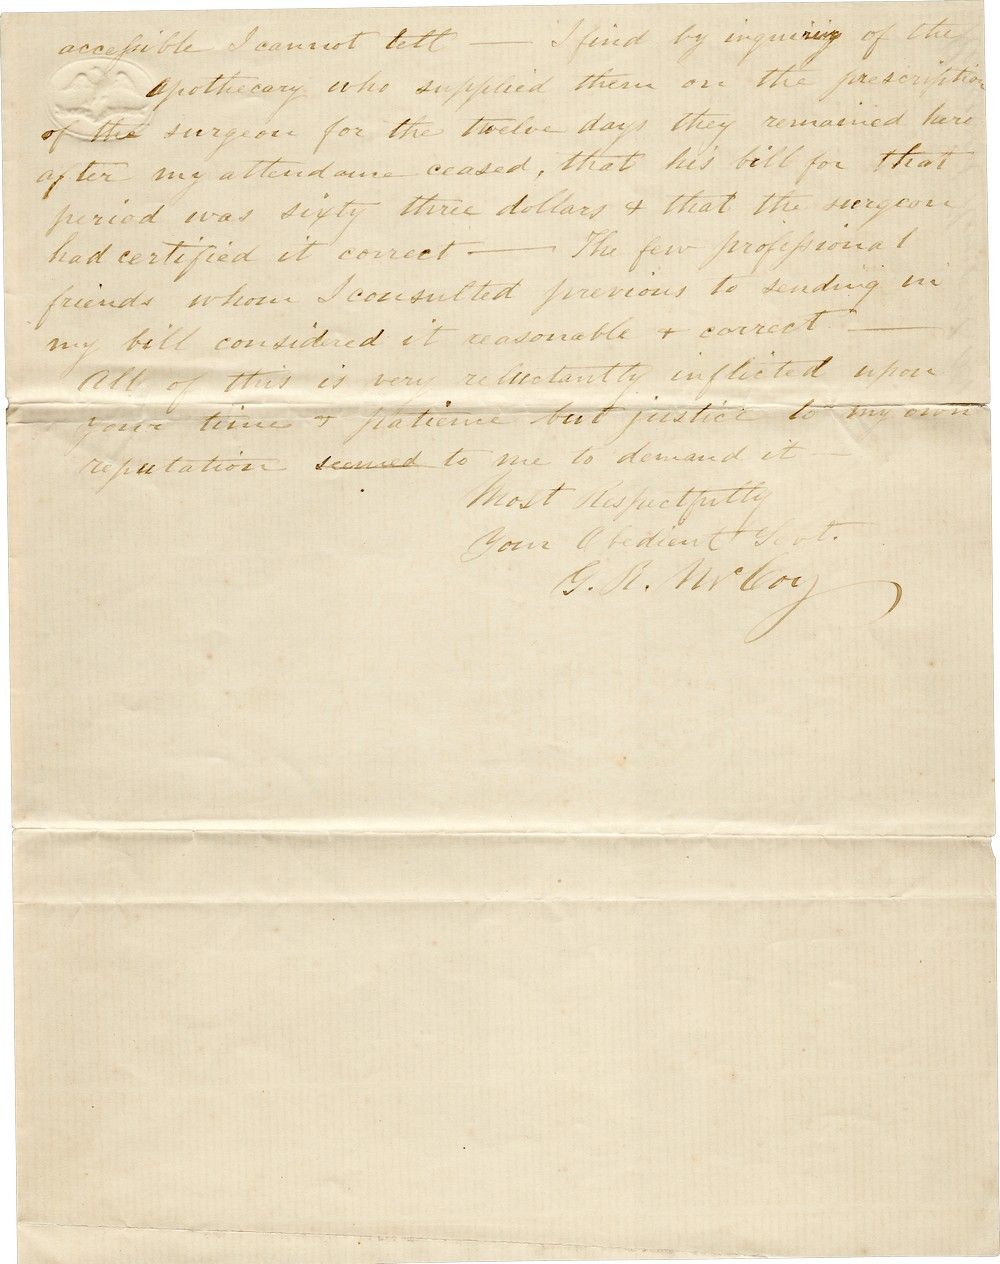 accessible I cannot tell — I find by inquiring of the
apothecary who supplied them on the prescription
of the surgeon for the twelve days they remained here
after my attendance ceased, that his bill for that
period was sixty three dollars & that the surgeon
had certified it correct — The few professional
friends whom I consulted previous to sending in
my bill considered it reasonable & correct —
All of this is very reluctantly inflicted upon
your time & patience but justice to my own
reputation seemed to me to demand it —
Most Respectfully
Your Obedient Servt.
G. R. McCoy